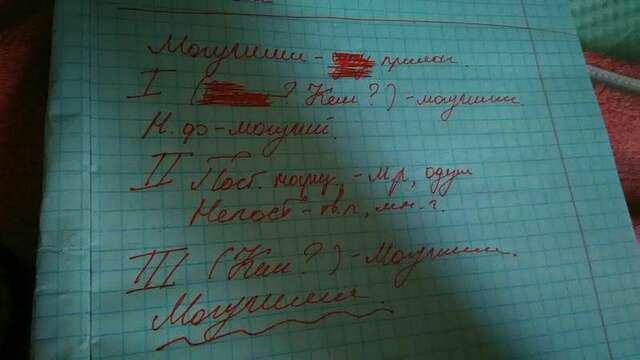 Могучими - прилаг.
I (? Кем?) - могучими
Н.ф - могучий.
II Пост. - м.р, одуш
Непост - т.п, мн.ч.
III (Кем?) - Могучими.
Могучими.